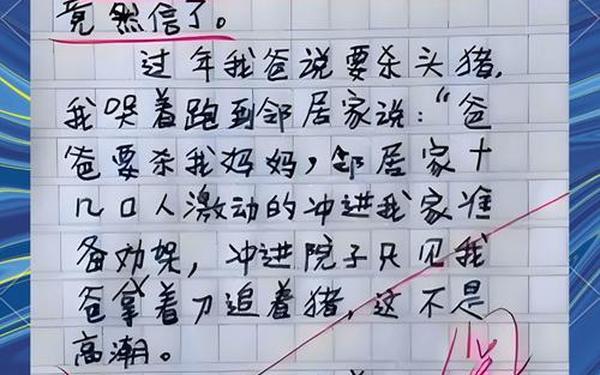 竟然信了。
过年我爸说要杀头猪,
我哭着跑到邻居家说:“爸
爸要杀我妈妈,邻居家十
几口人激动的冲进我家准
备劝架,冲进院子只见我
爸拿着刀追着猪,这不是
高潮。
阅